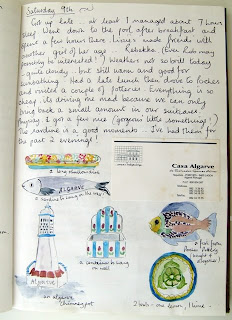 Saturday 9th
Got up late - at least I managed about 7 hours
sleep. Went down to the pool after breakfast and
spent a few hours there. Lina's made friends with
another girl of her age - Rebekka (Ever Rob may
be interested!) Weather not so hot today
quite cloudy - but still warm and good for
sunbathing. Had a late lunch then drove to Loches
and visited a couple of potteries. Everything is so
cheap - its driving me mad because we can only
bring back a small amount in our suitcases.
Anyway I got a few nice (gorgeous little something's!)
The sardine is a good momento... I've had them for
the past 2 evenings!
Casa Algarve
1 long
ALGARVE
a sardine to hang on the
ALGARVE
an algarve
chimneypot
a container to hang
on wall
a fish from
Porches Pottery
2 bowls - one lemon, 1 lime -